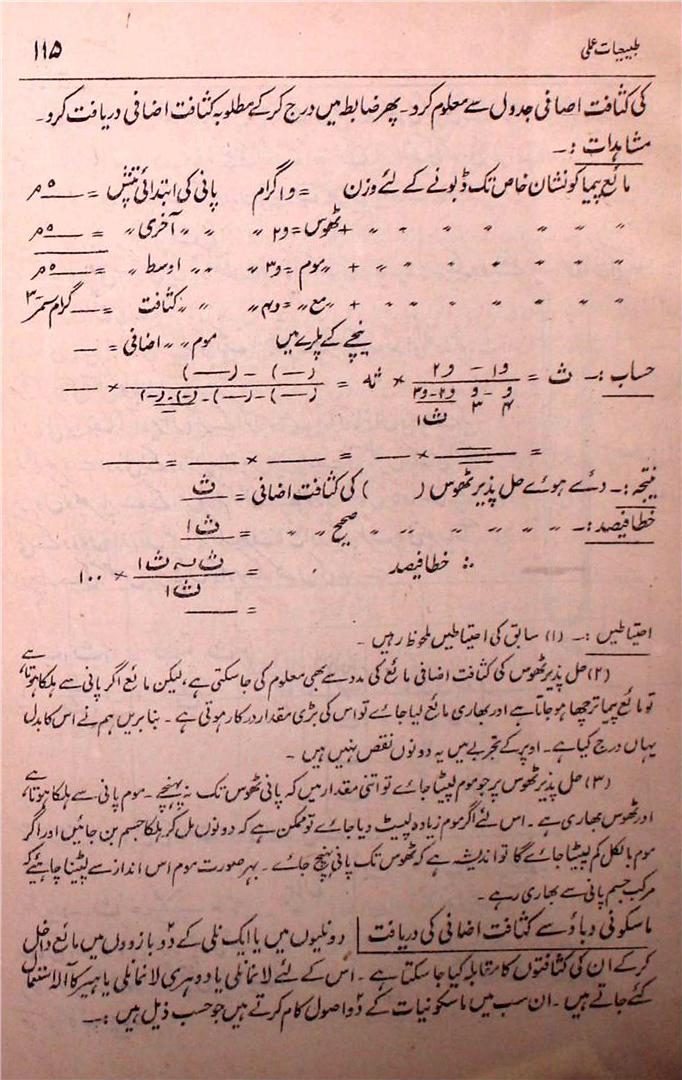 طبیعیات عملی ۱۱۵
کی کثافت اضافی جدول سے معلوم کرو۔ پھر ضابطہ میں درج کرکے مطلوبہ کثافت اضافی دریافت کرو۔
مشاہدات :۔
مائع پیما کو نشان خاص تک ڈبونے کے لئے وزن = و۱ گرام پانی کی ابتدائی تپش = ___ °م
〃 〃 〃 〃 〃 〃 + ٹھوس = و۲ 〃 〃 〃 آخری 〃 = ___ °م
〃 〃 〃 〃 〃 〃 + 〃 موم = و۳ 〃 〃 〃 اوسط 〃 = ___ °م
〃 〃 〃 〃 〃 〃 + 〃 مع 〃 = و۴ 〃 〃 〃 کثافت = ___ گرام سمر-۳
نیچے کے پلڑے میں موم 〃 〃 اضافی = ___
حساب :۔ ث = (و۱ - و۲) / (و۳ - و۴ - (و۲-و۳)/ث۱) × ثہ = ((—) - (—)) / ((—) - (—) - (—)-(—)) × ___
= ___ × ___ = ___ × ___ = ___
نتیجہ :۔ دئے ہوئے حل پذیر ٹھوس ( ) کی کثافت اضافی = ث
خطا فیصد :۔ 〃 〃 〃 〃 〃 صحیح 〃 〃 = ث۱
∴ خطا فیصد = (ث ~ ث۱) / ث۱ × ۱۰۰
= ___
احتیاطیں :۔ (۱) سابق کی احتیاطیں ملحوظ رہیں ۔
(۲) حل پذیر ٹھوس کی کثافت اضافی مائع کی مدد سے بھی معلوم کی جاسکتی ہے، لیکن مائع اگر پانی سے ہلکا ہوتا ہے،
تو مائع پیما ترچھا ہوجاتا ہے اور بھاری مائع لیا جائے تو اس کی بڑی مقدار درکار ہوتی ہے ۔ بنابریں ہم نے اس کا بدل
یہاں درج کیا ہے۔ اوپر کے تجربے میں یہ دونوں نقص نہیں ہیں ۔
(۳) حل پذیر ٹھوس پر جو موم لپیٹا جائے تو اتنی مقدار میں کہ پانی ٹھوس تک نہ پہنچے ۔ موم پانی سے ہلکا ہوتا ہے،
اور ٹھوس بھاری ہے ۔ اس لئے اگر موم زیادہ لپیٹ دیا جائے تو ممکن ہے کہ دونوں مل کر ہلکا جسم بن جائیں اور اگر
موم بالکل کم لپیٹا جائے گا تو اندیشہ ہے کہ ٹھوس تک پانی پہنچ جائے ۔ بہر صورت موم اس انداز سے لپٹنا چاہئے کہ
مرکب جسم پانی سے بھاری رہے ۔
ماسکونی دباؤ سے کثافت اضافی کی دریافت | دونلیوں میں یا ایک نلی کے دو بازووں میں مائع داخل
کرکے ان کی کثافتوں کا مقابلہ کیا جاسکتا ہے ۔ اس کے لئے لانمانلی یا دوہری لانمانلی یا ہیر کا آلا استعمال
کئے جاتے ہیں ۔ ان سب میں ماسکونیات کے دو اصول کام کرتے ہیں جو حسب ذیل ہیں :۔